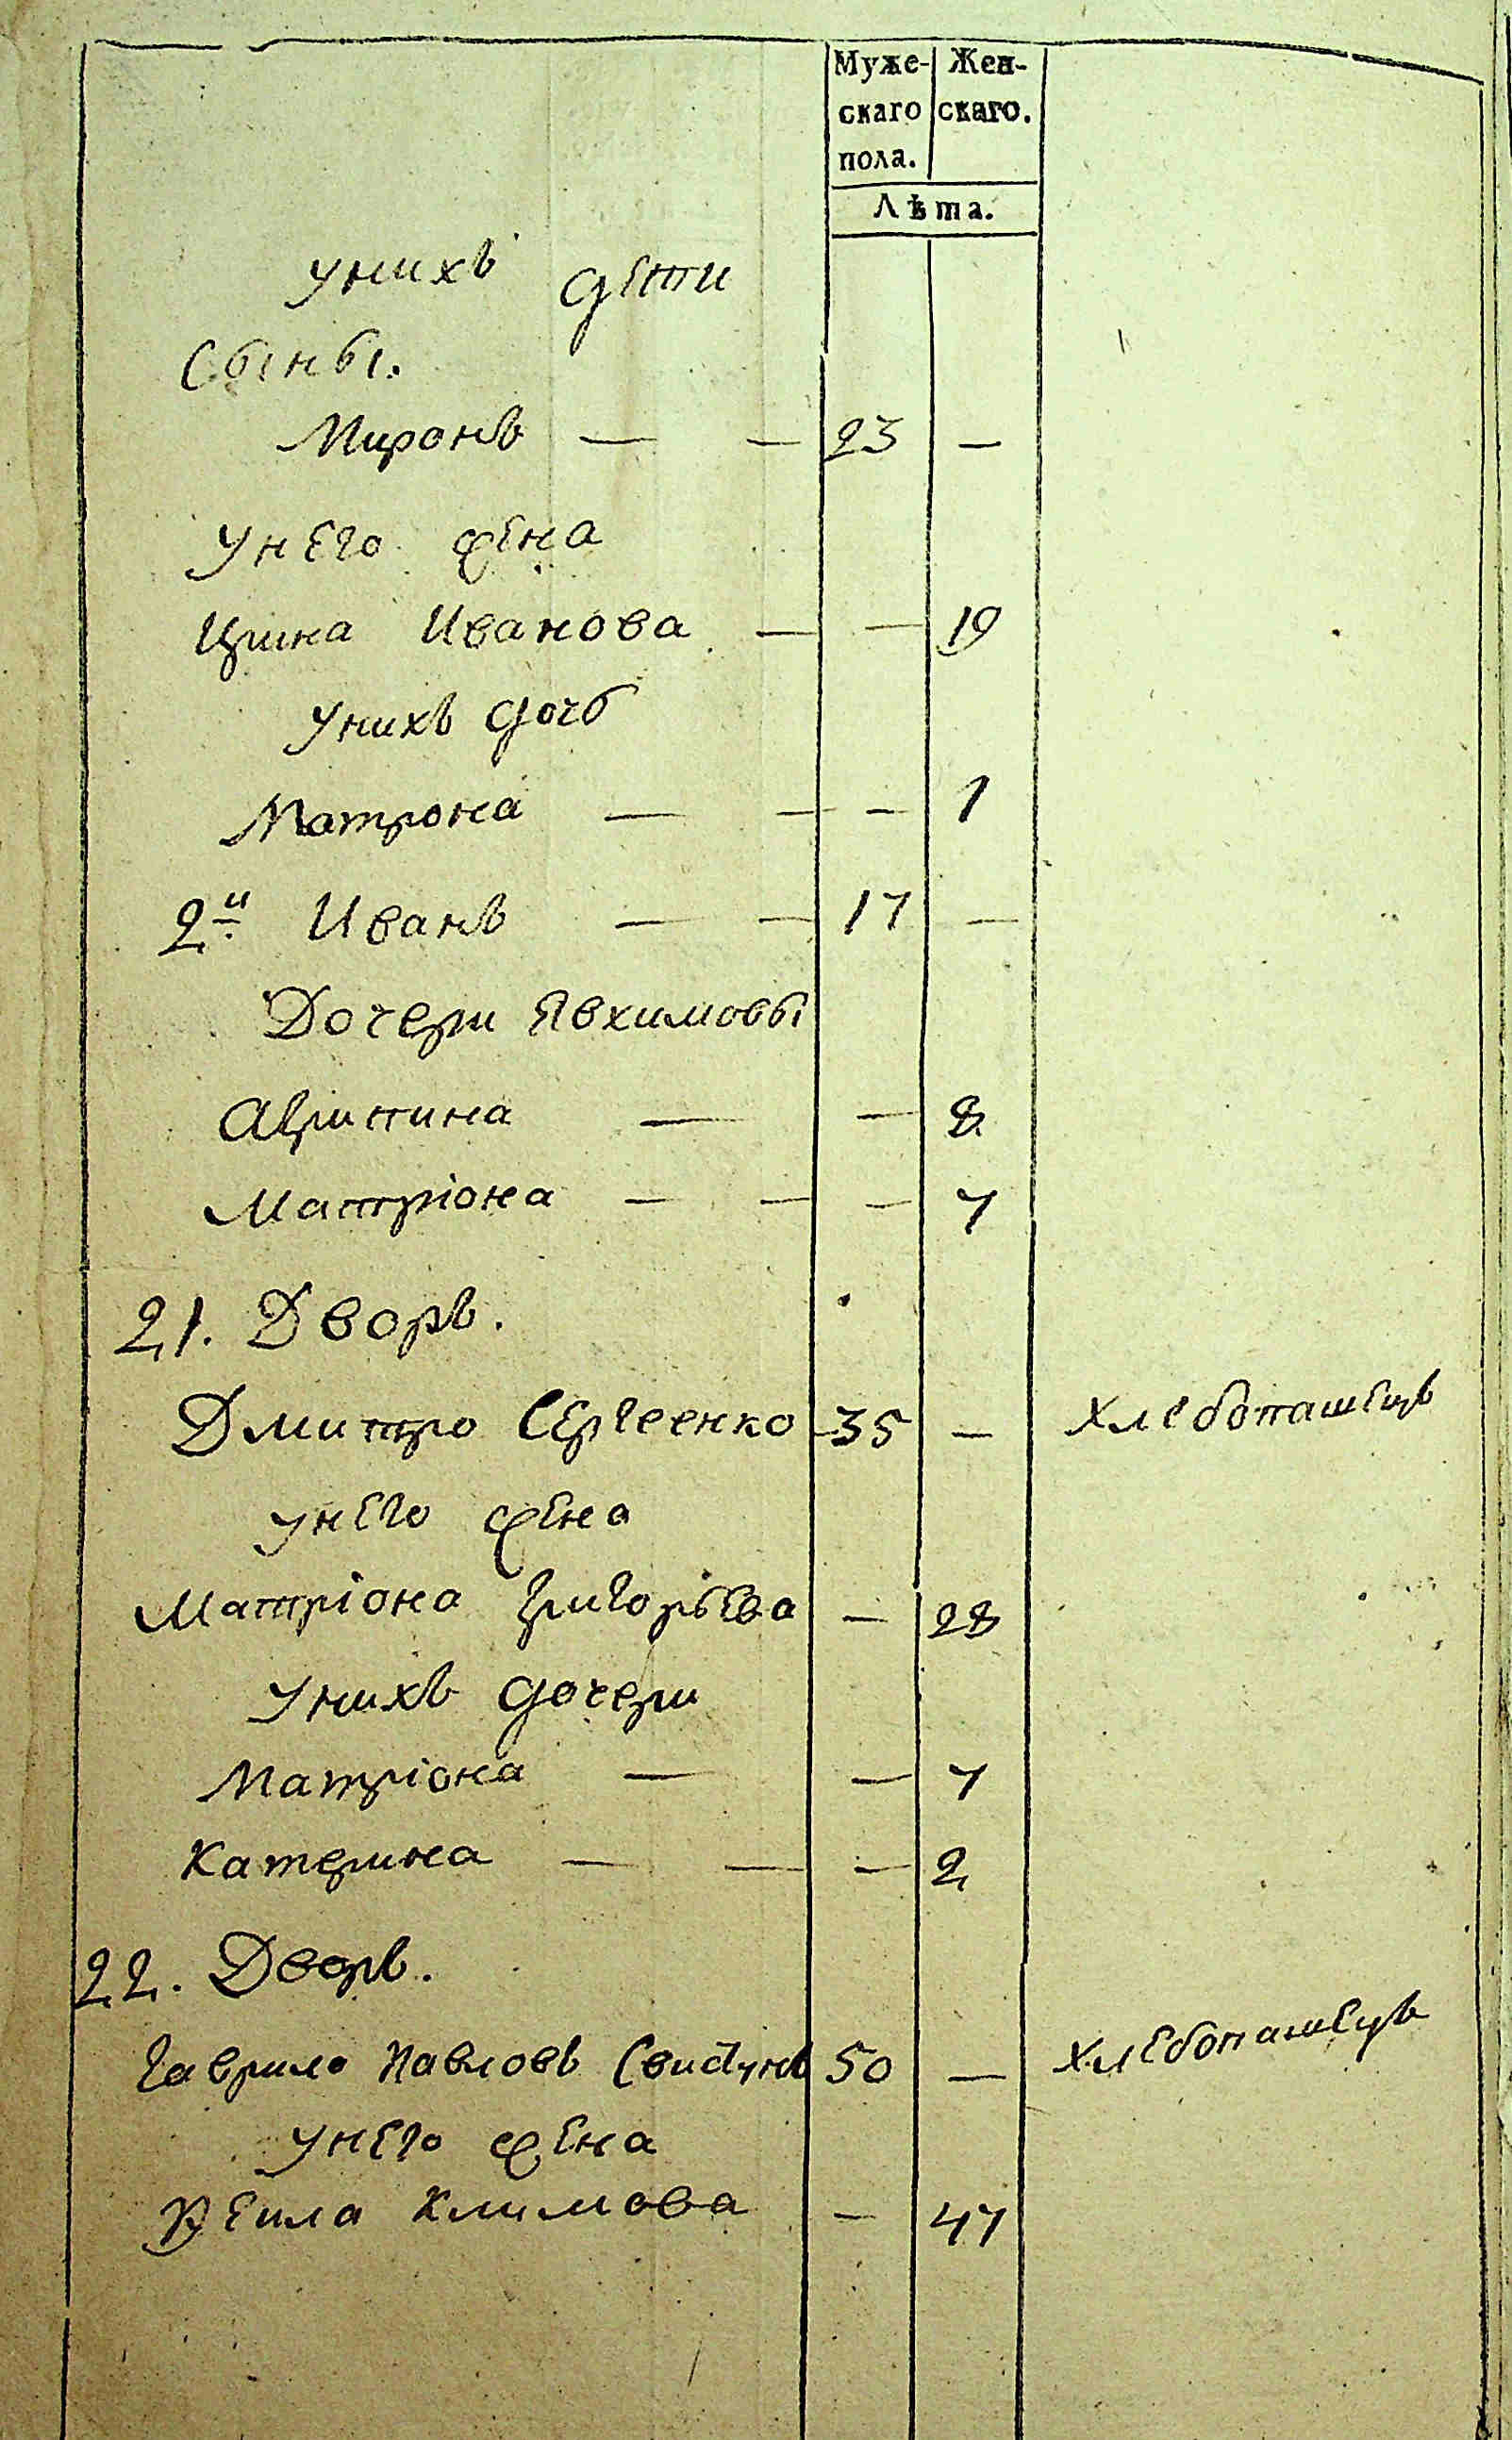 Муже- Жен-
скаго скаго.
пола.
Лѣта.
унихъ дети
Сыны.
Миронъ — — 23 —
унего жена
Ирина Иванова — — 19
унихъ дочь
Матрона — — — 1
2й Иванъ — — 17 —
Дочери Явхимовы
Аврипина — — 8
Матріона — — — 7
21. Дворъ.
Дмитро Сергеенко 35 — хлебопашецъ
унего жена
Матріона Григорьева — 28
унихъ дочери
Матріона — — 7
Катерина — — — 2
22. Дворъ.
Гаврило Павловъ Свидунъ 50 — хлебопашецъ
унего жена
Климова — 47